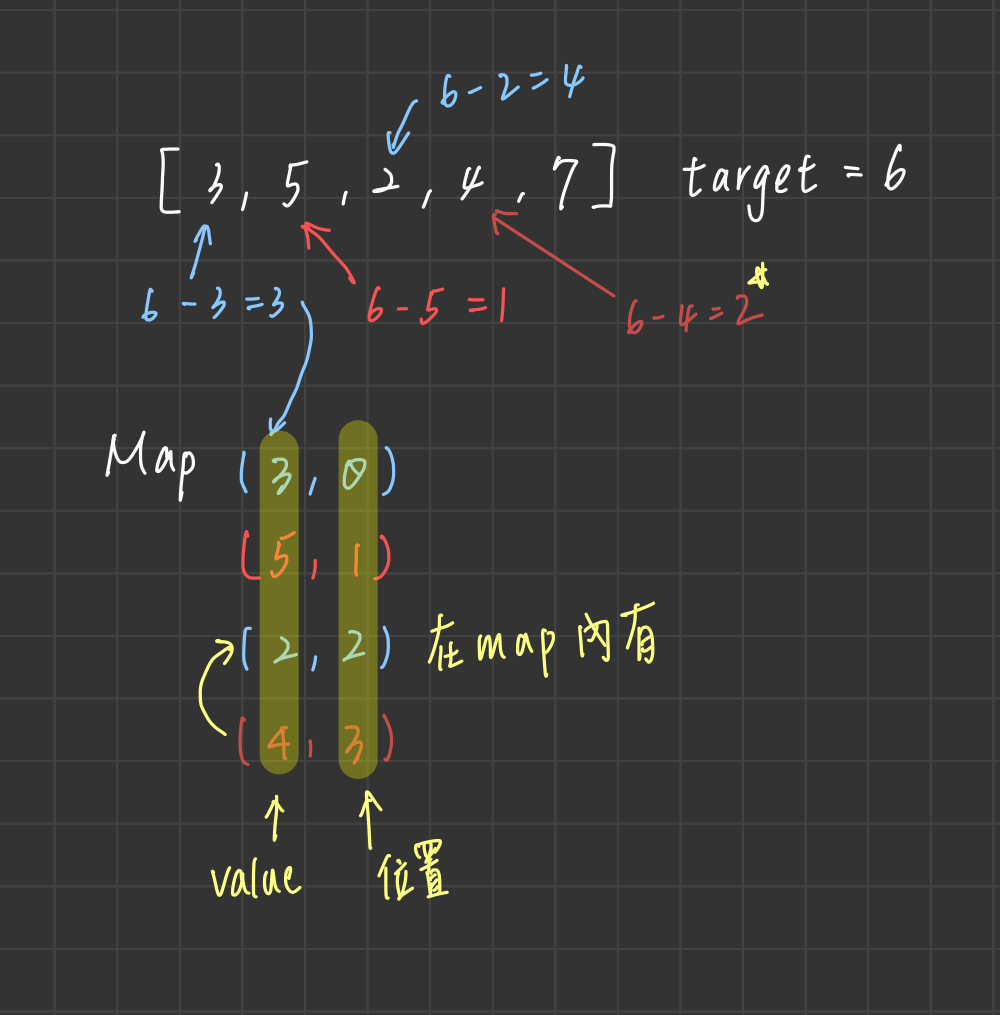 6 - 2 = 4
[ 3, 5, 2, 4, 7 ] target = 6
6 - 3 = 3
6 - 5 = 1
6 - 4 = 2*
Map (3, 0)
(5, 1)
(2, 2) 在map內有
(4, 3)
value 位置